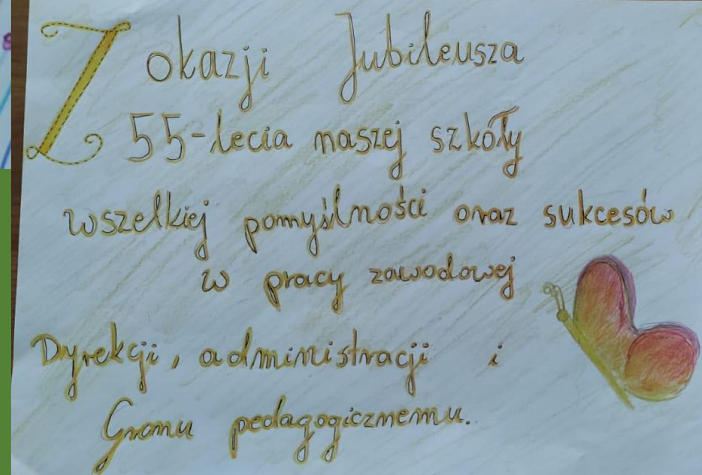 Z okazji Jubileusza
55-lecia naszej szkoły
wszelkiej pomyślności oraz sukcesów
w pracy zawodowej
Dyrekcji, administracji i
Gronu pedagogicznemu.